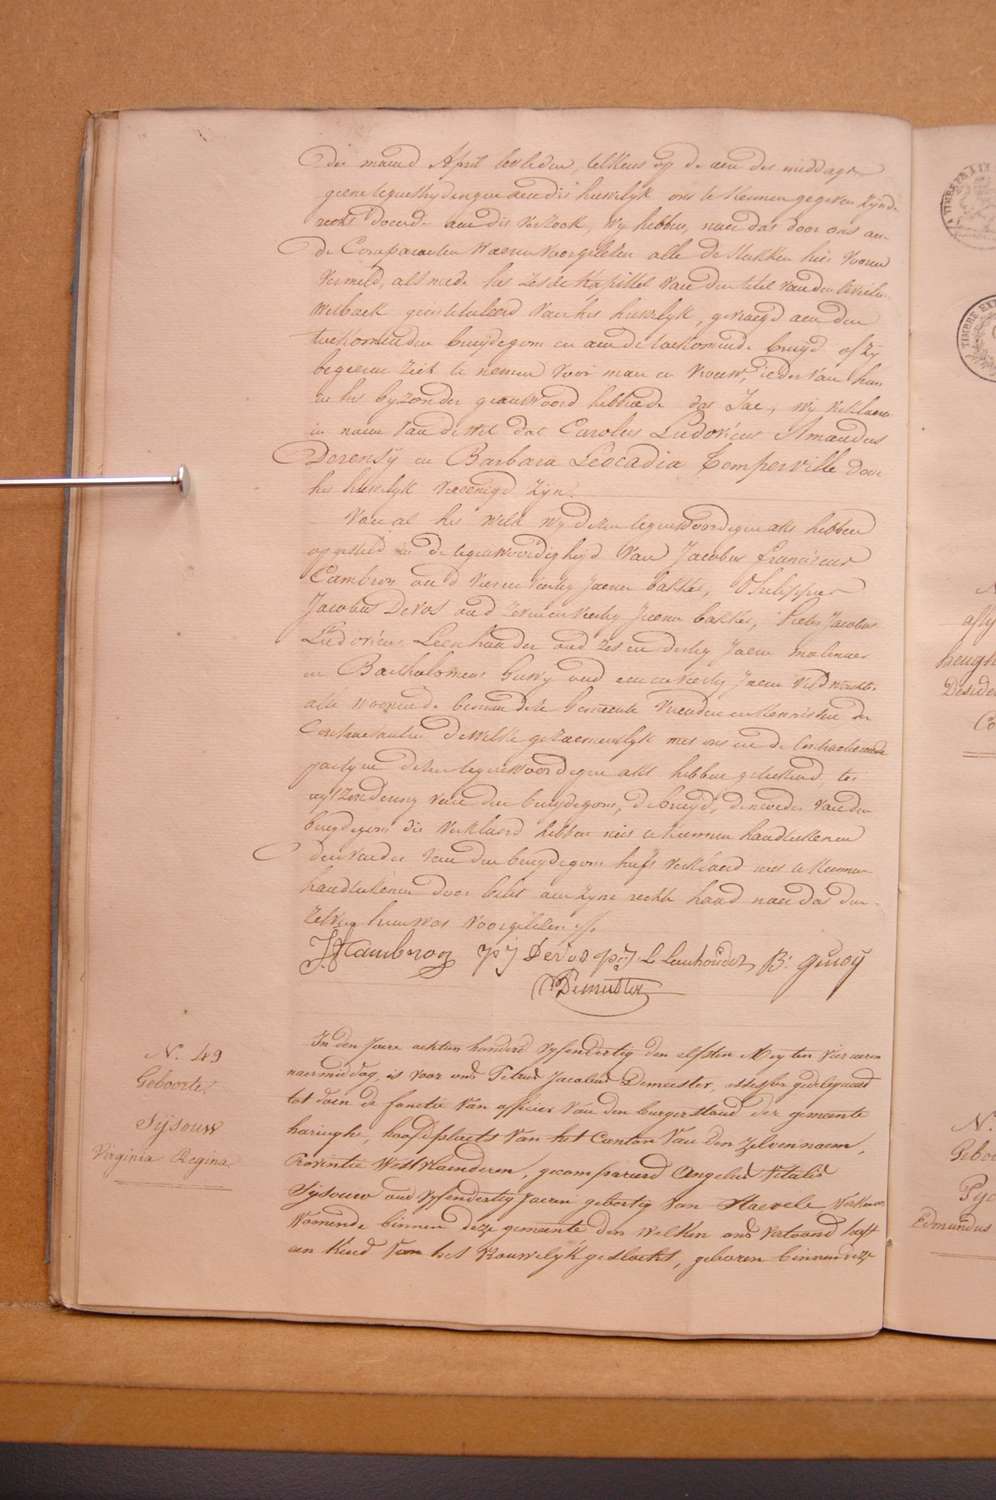 der maend April lestleden, telkens op de uer des middags
geene tegenstrydingen aen dit huwelyk ons te kennen gegeven zynde
recht doende aen dit verzoek, wy hebben, naer dat door ons aen
de Comparanten waeren voorgelezen alle de stukken hier vooren
vermeld, als mede het zesde kapittel van den titel van den Civielen
Wetboek geintituleerd van het huwelyk, gevraegd aen den
toekomenden bruydegom en aen de toekomende bruyd of zy
begeeren zich te nemen voor man en vrouw, ieder van hun
in het byzonder geantwoord hebbende dat Jae, wy verklaeren
in naem van de wet dat Carolus Ludovicus Amandus
Dorensy en Barbara Leocadia Temperville door
het huwelyk vereenigd zyn.
Van al het welk wy dezen tegenwoordigen akt hebben
opgesteld in de tegenwoordigheyd van Jacobus Franciscus
Cambron oud vier en veertig jaeren bakker, Philippus
Jacobus Devos oud zeven en veertig jaeren bakker, Pieter Jacobus
Ludovicus Leenhouder oud zes en dertig jaeren molenaer
en Bartholomeus Guwy oud een en veertig jaeren veldwachter
alle woonende binnen deze Gemeente vrienden en kennissen der
Contractanten dewelke gezaementlyk met ons en de Contracteerende
partyen dezen tegenwoordigen akt hebben geteekend, ten
uytzondering van den bruydegom, de bruyd, de moeder van den
bruydegom die verklaerd hebben niet te kunnen handteekenen
den vader van den bruydegom heeft verklaerd niet te kunnen
handteekenen door belet aen zyne rechte hand naer dat den
zelven hun was voorgelezen.
JF Cambron PJ Devos PJ L Leenhouder B. Guwy
Demeester
N. 49
Geboorte.
Sysouw
Virginia Regina.
In den Jaere achtien honderd vyfendertig den elfsten Mey ten vier uren
naermiddag, is voor ons Petrus Jacobus Demeester, schepen gedelegueerd
tot doen de fonctie van officier van den burgerstaend der gemeente
haringhe, hoofdplaets van het Canton van den zelven naem,
Provintie West Vlaenderen, gecompareerd Angelus Vitalis
Sysouw oud vyfendertig Jaeren gebortig van Stavele
Woonende binnen deze gemeente den welken ons vertoond heeft
een kind van het vrouwelyk geslacht, geboren binnen deze
N.
Edmundus